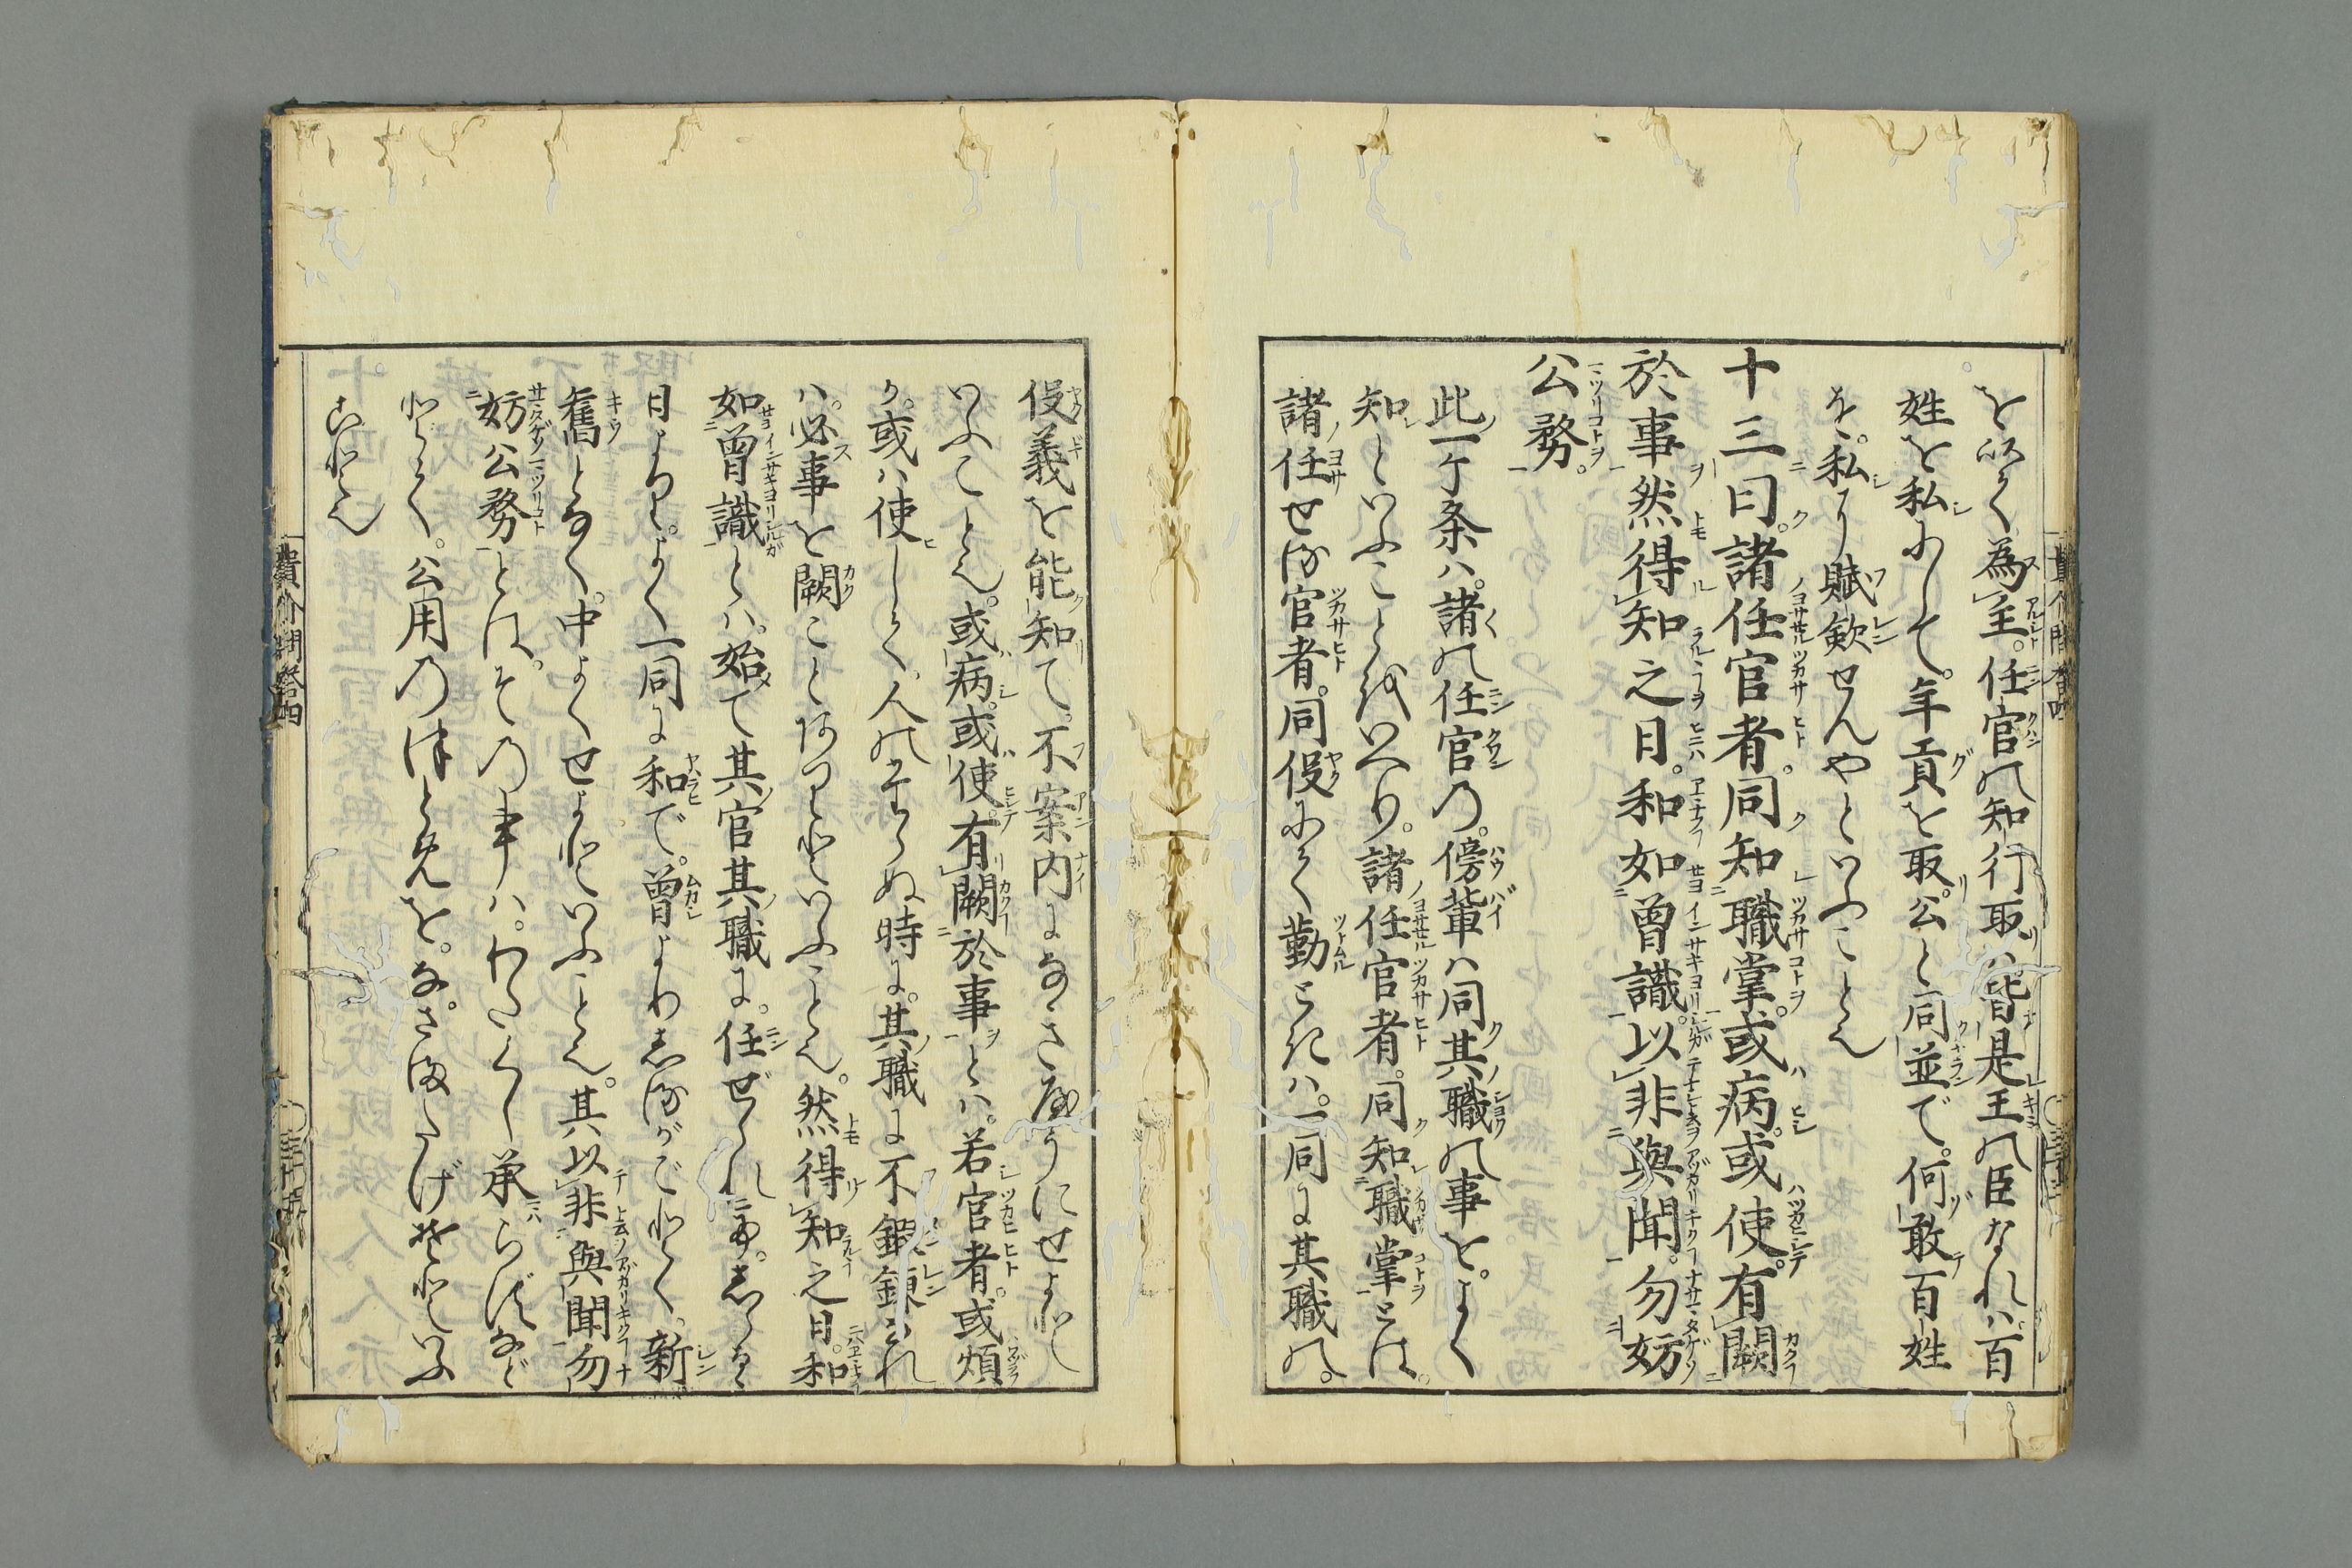 を以て為主。任官の知行取ハ皆是王の臣なれハ。百
姓を私にして。年貢を取。公と同並で。何敢百姓
を。私に賦斂せんやといふこと也
十三曰。諸任官者。同知職掌。或病。或使。有闕
於事。然得知之日。和如曽識。以非與聞。勿妨
公務。
此一ケ条ハ。諸の任官の。傍輩ハ同其職の事を。よく
知といふことをいへり。諸任官者。同知職掌とは。
諸任せる官者。同役にて勤ときハ。一同に其職の。
役義を能知て。不案内になきやうにせよと
いふこと也。或病。或使。有闕於事とハ。若官者。或煩
か。或ハ使して。人のたらぬ時に。其職に不鍛錬なれ
ハ。必事を闕ことありといふこと也。然得知之日。和
如曽識とハ。始て其官其職に。任ぜられ
日より。よく一同に和で。曽よりしるがごとく。新
舊となく。中よくせよといふこと也。其以非與聞勿
妨公務とは。その事ハ。わたくし承らずなど
とて。公用のつとめを。なさまたげそといふ
こと也